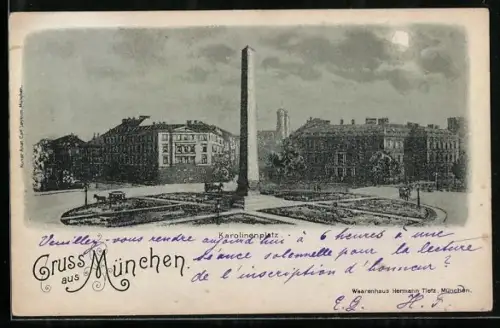 Karolinenplatz
Veuillez-vous rendre aujourd'hui à 6 heures à une
séance solennelle pour la lecture
de l'inscription d'honneur?
Gruss aus München.
Waarenhaus Hermann Tietz, München.
E.D. H.